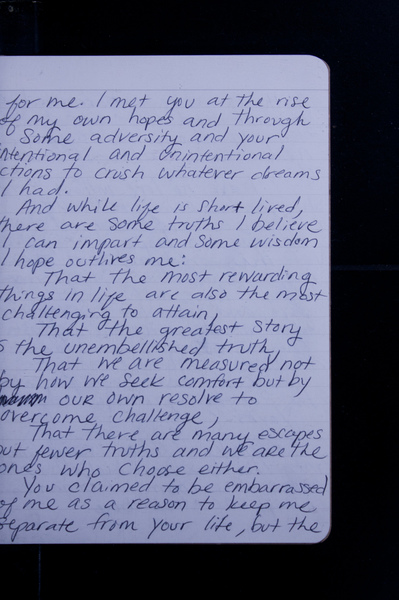 for me. I met you at the rise
of my own hopes and through
some adversity and your
intentional and unintentional
ctions to crush whatever dreams
I had.
And while life is short lived,
there are some truths I believe
I can impart and some wisdom
I hope outlives me:
That the most rewarding
things in life are also the most
challenging to attain,
That the greatest story
s the unembellished truth,
That we are measured not
by how we seek comfort but by
our own resolve to
overcome challenge,
That there are many escapes
but fewer truths and we are the
ones who choose either.
You claimed to be embarrassed
of me as a reason to keep me
separate from your life, but the